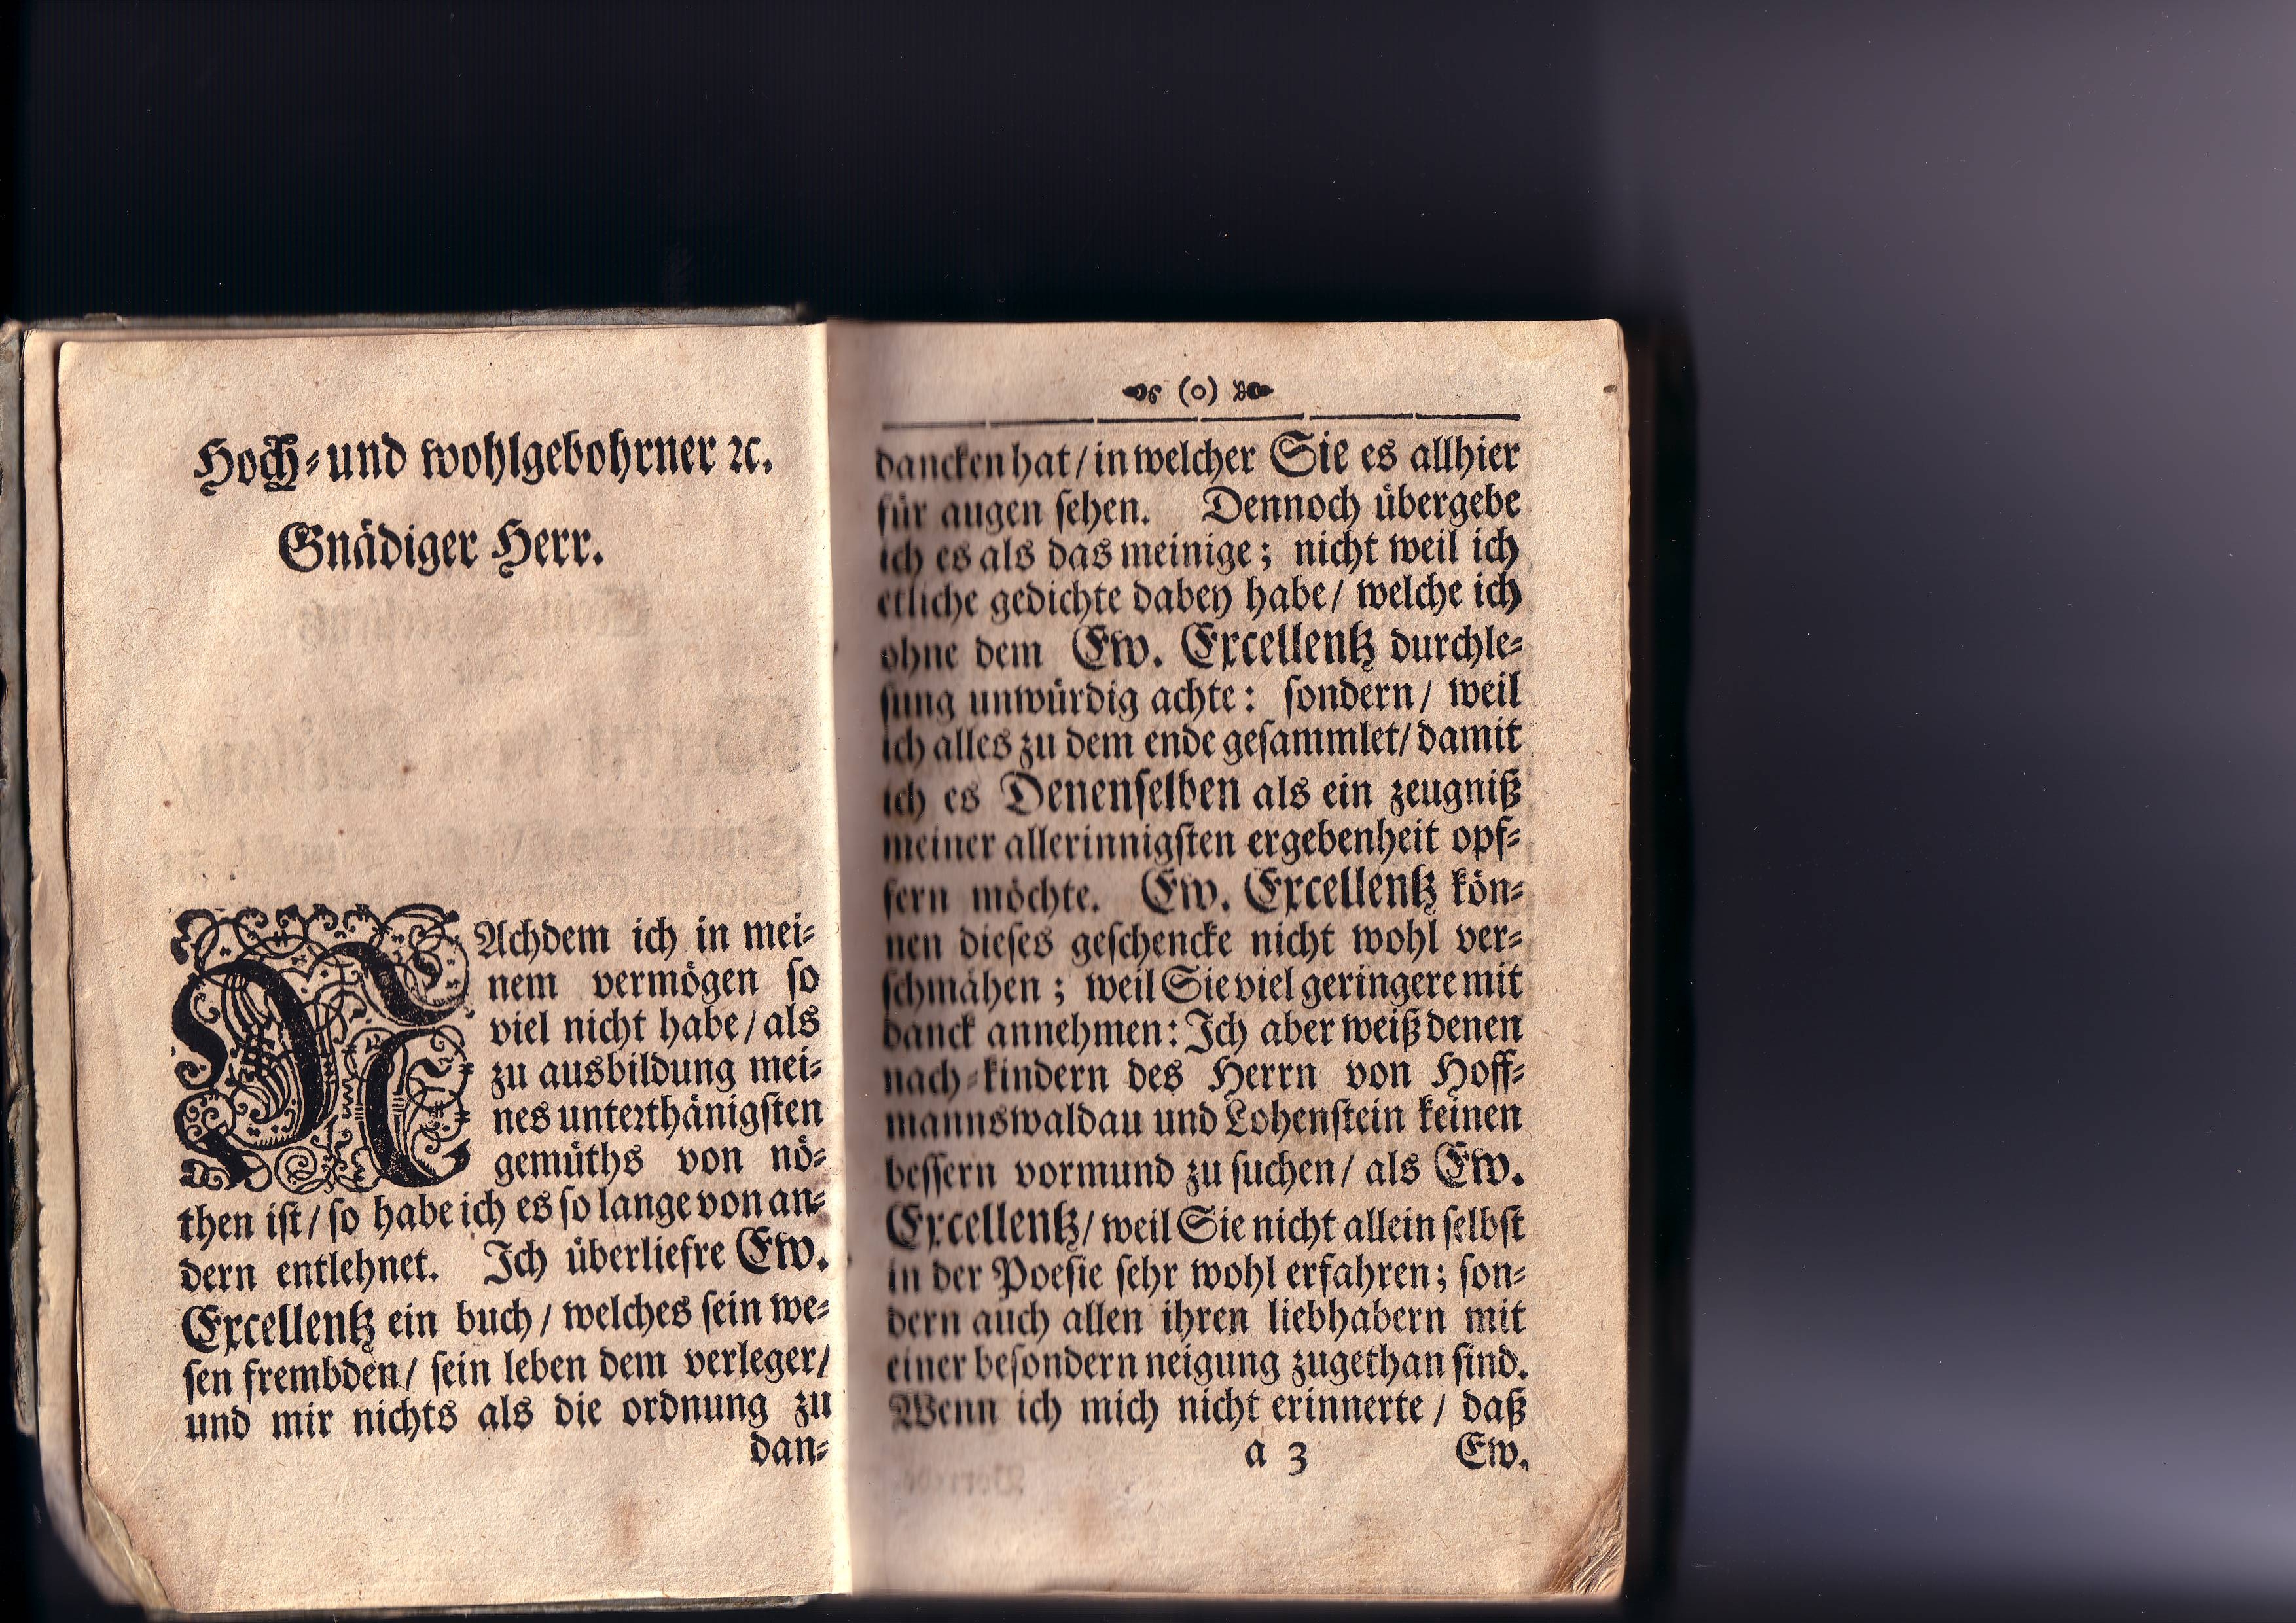 Hoch- und wohlgebohrner ꝛc.
Gnädiger Herr.
NAchdem ich in mei-
nem vermögen so
viel nicht habe / als
zu ausbildung mei-
nes unterthänigsten
gemüths von nö-
then ist / so habe ich es so lange von an-
dern entlehnet. Ich überliefre Ew.
Excellentz ein buch / welches sein we-
sen frembden / sein leben dem verleger /
und mir nichts als die ordnung zu
dan-
(o)
dancken hat / in welcher Sie es allhier
für augen sehen. Dennoch übergebe
ich es als das meinige; nicht weil ich
etliche gedichte dabey habe / welche ich
ohne dem Ew. Excellentz durchle-
sung unwürdig achte: sondern / weil
ich alles zu dem ende gesammlet / damit
ich es Denenselben als ein zeugniß
meiner allerinnigsten ergebenheit opf-
fern möchte. Ew. Excellentz kön-
nen dieses geschencke nicht wohl ver-
schmähen; weil Sie viel geringere mit
danck annehmen: Ich aber weiß denen
nach-kindern des Herrn von Hoff-
mannswaldau und Lohenstein keinen
bessern vormund zu suchen / als Ew.
Excellentz / weil Sie nicht allein selbst
in der Poesie sehr wohl erfahren; son-
dern auch allen ihren liebhabern mit
einer besondern neigung zugethan sind.
Wenn ich mich nicht erinnerte / daß
a 3 Ew.